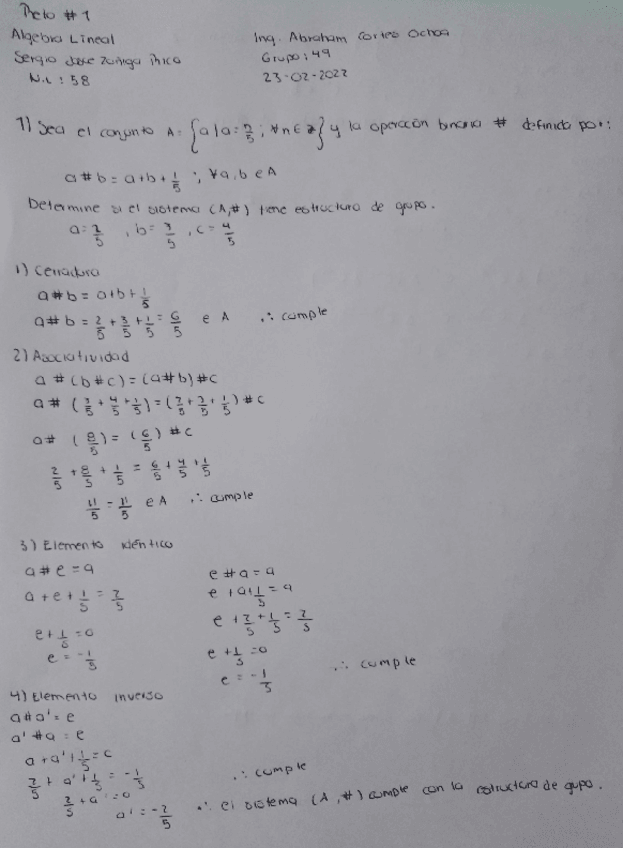 Reto # 1
Algebra Lineal
Ing. Abraham Cortes Ochoa
Sergio Jose Zuñiga Rico
Grupo: 49
N.L : 58
23-02-2022
1) Sea el conjunto A = {a | a = n/5 ; ∀n ∈ z} y la operación binaria # definida por:
a # b = a+b+1/5 ; ∀a,b e A
Determine si el sistema (A,#) tiene estructura de grupo.
a = 2/5 , b = 3/5 , c = 4/5
1) Cerradura
a # b = a+b+1/5
a # b = 2/5 + 3/5 + 1/5 = 6/5 e A ∴ cumple
2) Asociatividad
a # (b # c) = (a # b) # c
a # (3/5 + 4/5 + 1/5) = (2/5 + 3/5 + 1/5) # c
a # (8/5) = (6/5) # c
2/5 + 8/5 + 1/5 = 6/5 + 4/5 + 1/5
11/5 = 11/5 e A ∴ cumple
3) Elemento idéntico
a # e = a
a + e + 1/5 = 2/5
e + 1/5 = 0
e = -1/5
e # a = a
e + a + 1/5 = a
e + 2/5 + 1/5 = 2/5
e + 1/5 = 0
e = -1/5 ∴ cumple
4) Elemento inverso
a # a' = e
a' # a = e
a + a' + 1/5 = e
2/5 + a' + 1/5 = -1/5 ∴ cumple
2/5 + a' = 0
a' = -2/5 ∴ el sistema (A,#) cumple con la estructura de grupo.